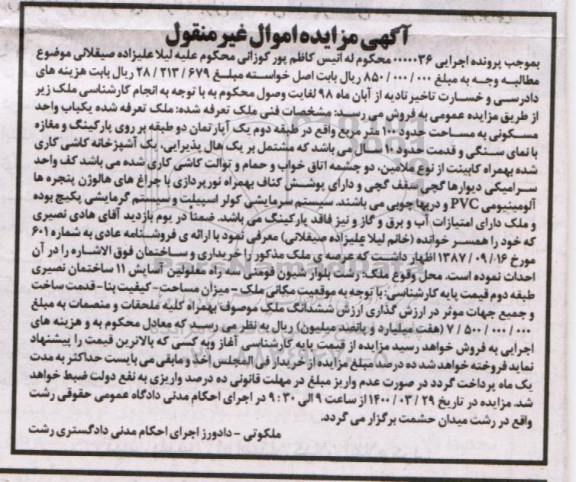 آگهی مزایده اموال غیر منقول
بموجب پرونده اجرایی ۰۰۰۰۰۳۶ محکوم له انیس کاظم پور کوزانی محکوم علیه لیلا علیزاده صیقلانی موضوع
مطالبه وجه به مبلغ ۸۵۰/۰۰۰/۰۰۰ ریال بابت اصل خواسته مبلغ ۲۸/۲۱۳/۶۷۹ ریال بابت هزینه های
دادرسی و خسارت تاخیر تادیه از آبان ماه ۹۸ لغایت وصول محکوم به با توجه به انجام کارشناسی ملک زیر
از طریق مزایده عمومی به فروش می رسد: مشخصات فنی ملک تعرفه شده: ملک تعرفه شده یکباب واحد
مسکونی به مساحت حدود ۱۰۰ متر مربع واقع در طبقه دوم یک آپارتمان دو طبقه بر روی پارکینگ و مغازه
با نمای سنگی و قدمت حدود ۱۰ سال می باشد که مشتمل بر یک هال پذیرایی، یک آشپزخانه کاشی کاری
شده بهمراه کابینت از نوع ملامین، دو چشمه اتاق خواب و حمام و توالت کاشی کاری شده می باشد کف واحد
سرامیکی دیوارها گچی سقف گچی و دارای پوشش کناف بهمراه نورپردازی با چراغ های هالوژن پنجره ها
آلومینیومی PVC و دربها چوبی می باشند. سیستم سرمایشی کولر اسپیلت و سیستم گرمایشی پکیج بوده
و ملک دارای امتیازات آب و برق و گاز و نیز فاقد پارکینگ می باشد. ضمناً در یوم بازدید آقای هادی نصیری
که خود را همسر خوانده (خانم لیلا علیزاده صیقلانی) معرفی نمود با ارائه ی فروشنامه عادی به شماره ۶۰۱
مورخ ۱۳۸۷/۰۹/۱۶ اظهار داشت که عرصه ی ملک مذکور را خریداری و ساختمان فوق الاشاره را در آن
احداث نموده است. محل وقوع ملک: رشت بلوار شیون فومنی سه راه معلولین آسایش ۱۱ ساختمان نصیری
طبقه دوم قیمت پایه کارشناسی: با توجه به موقعیت مکانی ملک - میزان مساحت- کیفیت بنا- قدمت ساخت
و جمیع جهات موثر در ارزش گذاری ارزش ششدانگ ملک موصوف بهمراه کلیه ملحقات و منصمات به مبلغ
۷/۵۰۰/۰۰۰/۰۰۰ (هفت میلیارد و پانصد میلیون) ریال به نظر می رسید که معادل محکوم به و هزینه های
اجرایی به فروش خواهد رسید مزایده از قیمت پایه کارشناسی آغاز وبه کسی که بالاترین قیمت را پیشنهاد
نماید فروخته خواهد شد ده درصد مبلغ مزایده از خریدار فی المجلس اخذ و مابقی می بایست حداکثر به مدت
یک ماه پرداخت گردد در صورت عدم واریز مبلغ در مهلت قانونی ده درصد واریزی به نفع دولت ضبط خواهد
شد. مزایده در تاریخ ۱۴۰۰/۰۳/۲۹ از ساعت ۹ الی ۹:۳۰ در اجرای احکام مدنی دادگاه عمومی حقوقی رشت
واقع در رشت میدان حشمت برگزار می گردد.
ملکوتی - دادورز اجرای احکام مدنی دادگستری رشت